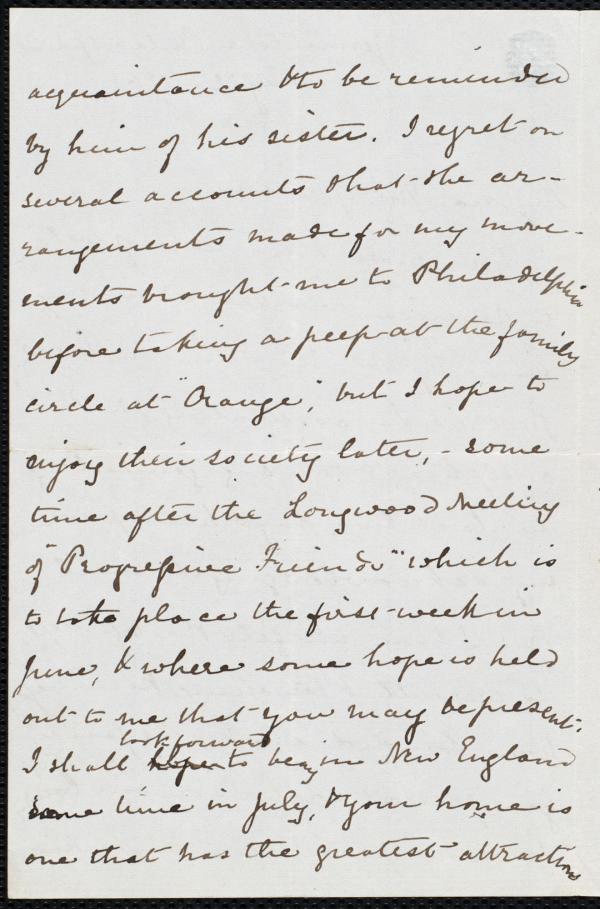 acquaintance & to be reminded
by him of his sister. I regret on
several accounts that the ar-
rangements made for my move-
ments brought me to Philadelphia
before taking a peep at the family
circle at "Orange", but I hope to
enjoy their society later, - some
time after the Longwood Meeting
of Progressive Friends" which is
to take place the first week in
June, & where some hope is held
out to me that you may be present.
look forward
I shall hope to being in New England
some time in July, & your home is
one that has the greatest attractions